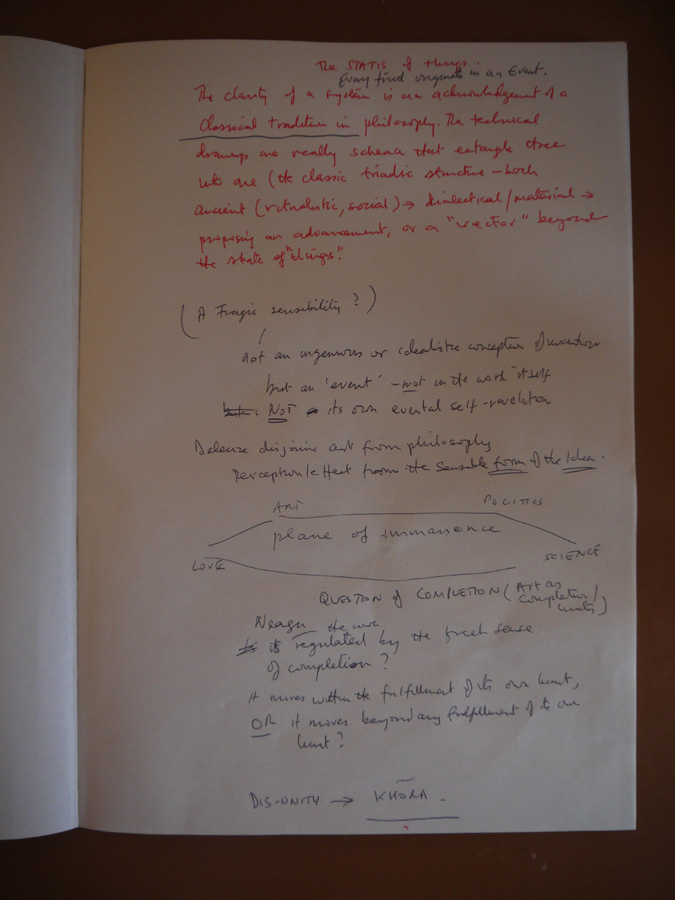 The STATIS of things.
Every find originates in an Event.
The clarity of a system is an acknowledgement of a
classical tradition in philosophy. The technical
drawings are really schema that entangle three
into one (the classic triadic structure – both
ancient (ritualistic, social) → dialectical/material →
proposing an advancement, or a "vector" beyond
the state of "things".
(A Tragic sensibility?)
not an ingenious or idealistic conception of invention
but an 'event' – not in the work itself
NOT its own evental self-revelation
Deleuze disjoins art from philosophy
Perception/effect from the sensible form of the Idea.
ART POLITICS
plane of immanence
LOVE SCIENCE
QUESTION of COMPLETION (Art as
completion/
limits)
Neagu the work
is regulated by the Greek sense
of completion?
It moves within the fulfillment of its own limit,
OR it moves beyond any fulfillment of its own
limit?
DIS-UNITY → KHORA.